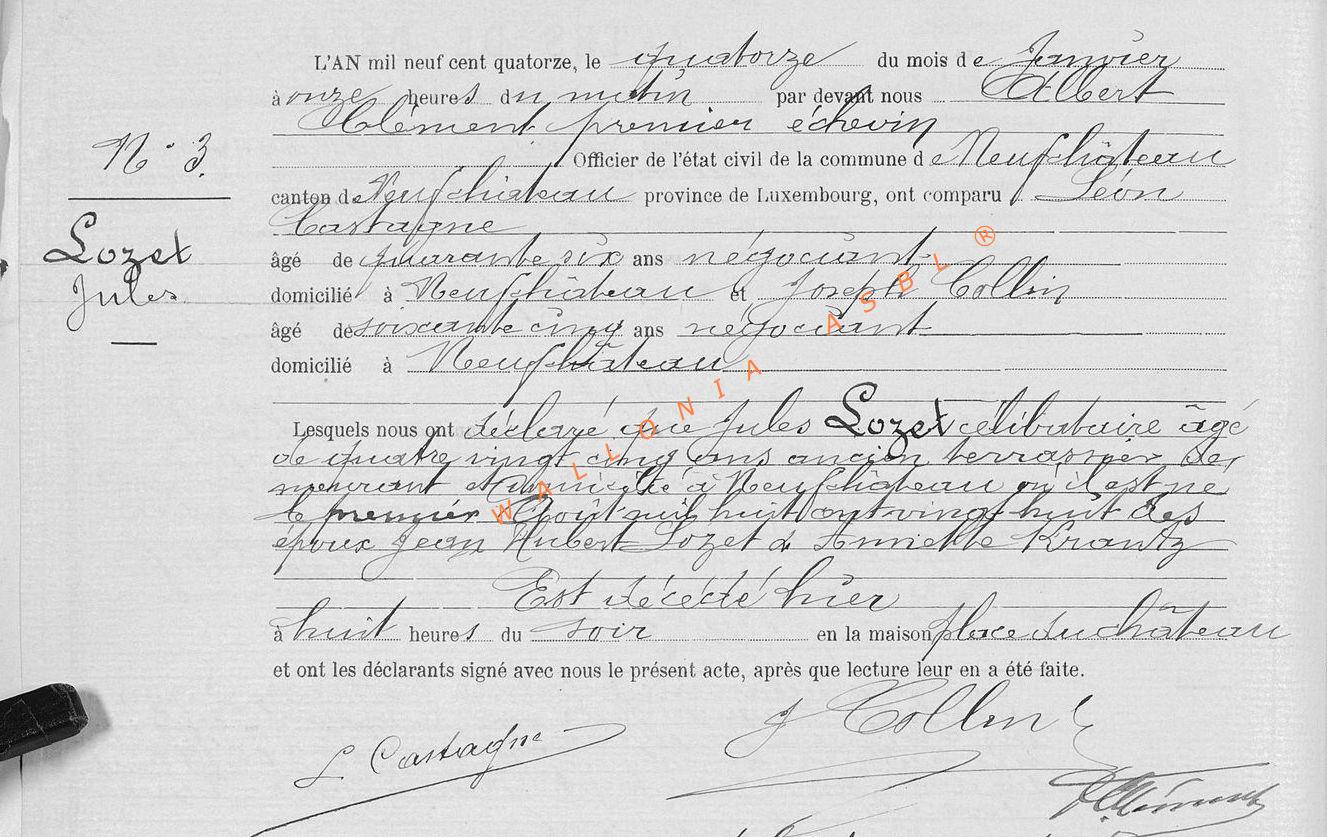 L'AN mil neuf cent quatorze, le quatorze du mois de Janvier
à onze heures du matin par devant nous Albert
Clément premier échevin
N° 3.
Officier de l'état civil de la commune de Neufchâteau
canton de Neufchâteau province de Luxembourg, ont comparu Léon
Castagne
Lozet
Jules
âgé de quarante six ans négociant
domicilié à Neufchâteau et Joseph Collin
âgé de soixante cinq ans négociant
domicilié à Neufchâteau
Lesquels nous ont déclaré que Jules Lozet célibataire âgé
de quatre vingt cinq ans ancien terrassier de
meurant et domicilié à Neufchâteau où il est né
le premier Août mil huit cent vingt huit des
époux Jean Hubert Lozet & Annette Krantz
Est décédé hier
à huit heures du soir en la maison place du château
et ont les déclarants signé avec nous le présent acte, après que lecture leur en a été faite.
J Collin
L Castagne
Clément
WALLONIA ASBL ®